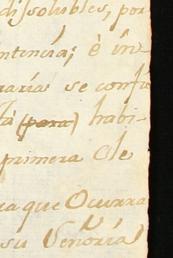 dissolubles, por
ntencia; è in-
raria se confir
ta (para) habi-
primera Ele
ra que Ocurra
su Señoria)